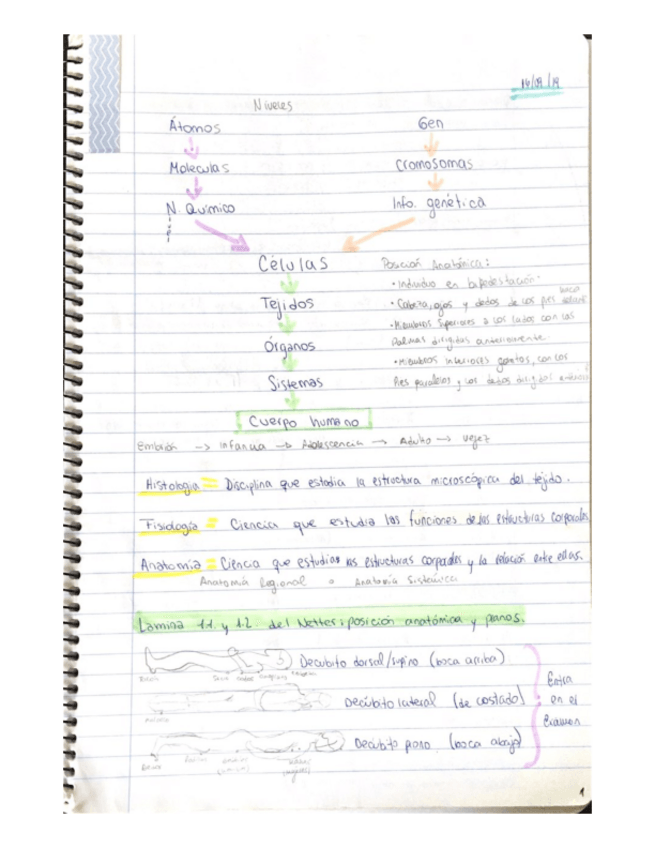 Niveles
Átomos
Gen
Moleculas
Cromosomas
N. Químico
Info. genética
Células
Posición Anatómica:
• Individuo en bipedestación.
Tejidos
• Cabeza, ojos y dedos de los pies hacia
• Miembros superiores a los lados con las
Órganos
Palmas dirigidas anteriormente.
• Miembros inferiores juntos, con los
Sistemas
Pies paralelos y los dedos
Cuerpo humano
Embrión -> infancia -> Adolescencia -> Adulto -> vejez
Histologia = Disciplina que estudia la estructura microscópica del tejido.
Fisiología = Ciencia que estudia las funciones de las estructuras corporales
Anatomía = Ciencia que estudia las estructuras corporales y la relación entre ellas.
Anatomía Regional o Anatomía Sistémica
Lamina 1.1. y 1.2. del Netter: posición anatómica y planos.
Decubito dorsal/supino (boca arriba)
Decúbito lateral (de costado)
Decúbito prono (boca abajo)
Entra
en el
Examen
1